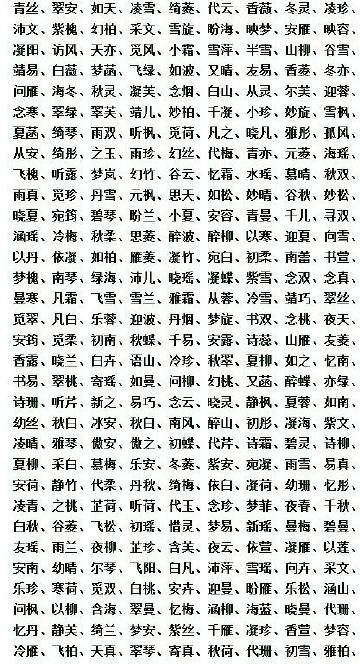 青丝、翠安、如天、凌雪、绮菱、代云、香薇、冬灵、凌珍、
沛文、紫槐、幻柏、采文、雪旋、盼海、映梦、安雁、映容、
凝阳、访风、天亦、觅风、小霜、雪萍、半雪、山柳、谷雪、
靖易、白薇、梦菡、飞绿、如波、又晴、友易、香菱、冬亦、
问雁、海冬、秋灵、凝芙、念烟、白山、从灵、尔芙、迎蓉、
念寒、翠绿、翠芙、靖儿、妙柏、千凝、小珍、妙旋、雪枫、
夏菡、绮琴、雨双、听枫、觅荷、凡之、晓凡、雅彤、孤风、
从安、绮彤、之玉、雨珍、幻丝、代梅、青亦、元菱、海瑶、
飞槐、听露、梦岚、幻竹、谷云、忆霜、水瑶、慕晴、秋双、
雨真、觅珍、丹雪、元枫、思天、如松、妙晴、谷秋、妙松、
晓夏、宛筠、碧琴、盼兰、小夏、安容、青曼、千儿、寻双、
涵瑶、冷梅、秋柔、思菱、醉波、醉柳、以寒、迎夏、向雪、
以丹、依凝、如柏、雁菱、凝竹、宛白、初柔、南蕾、书萱、
梦槐、南琴、绿海、沛儿、晓瑶、凝蝶、紫雪、念双、念真、
曼寒、凡霜、飞雪、雪兰、雅霜、从蓉、冷雪、靖巧、翠丝、
觅翠、凡白、乐蓉、迎波、丹烟、梦旋、书双、念桃、夜天、
安筠、觅柔、初南、秋蝶、千易、安露、诗蕊、山雁、友菱、
香露、晓兰、白卉、语山、冷珍、秋翠、夏柳、如之、忆南、
书易、翠桃、寄瑶、如曼、问柳、幻桃、又菡、醉蝶、亦绿、
诗珊、听芹、新之、易巧、念云、晓灵、静枫、夏蓉、如南、
幼丝、秋白、冰安、秋白、南风、醉山、初彤、凝海、紫文、
凌晴、雅琴、傲安、傲之、初蝶、代芹、诗霜、碧灵、诗柳、
夏柳、采白、慕梅、乐安、冬菱、紫安、宛凝、雨雪、易真、
安荷、静竹、代柔、丹秋、绮梅、依白、凝荷、幼珊、忆彤、
凌青、之桃、芷荷、听荷、代玉、念珍、梦菲、夜春、千秋、
白秋、谷菱、飞松、初瑶、惜灵、梦易、新瑶、曼梅、碧曼、
友瑶、雨兰、夜柳、芷珍、含芙、夜云、依萱、凝雁、以莲、
安南、幼晴、尔琴、飞阳、白凡、沛萍、雪瑶、向卉、采文、
乐珍、寒荷、觅双、白桃、安卉、迎曼、盼雁、乐松、涵山、
问枫、以柳、含海、翠曼、忆梅、涵柳、海蓝、晓曼、代珊、
忆丹、静芙、绮兰、梦安、紫丝、千雁、凝珍、香萱、梦容、
冷雁、飞柏、天真、翠琴、寄真、秋荷、代珊、初雪、雅柏、